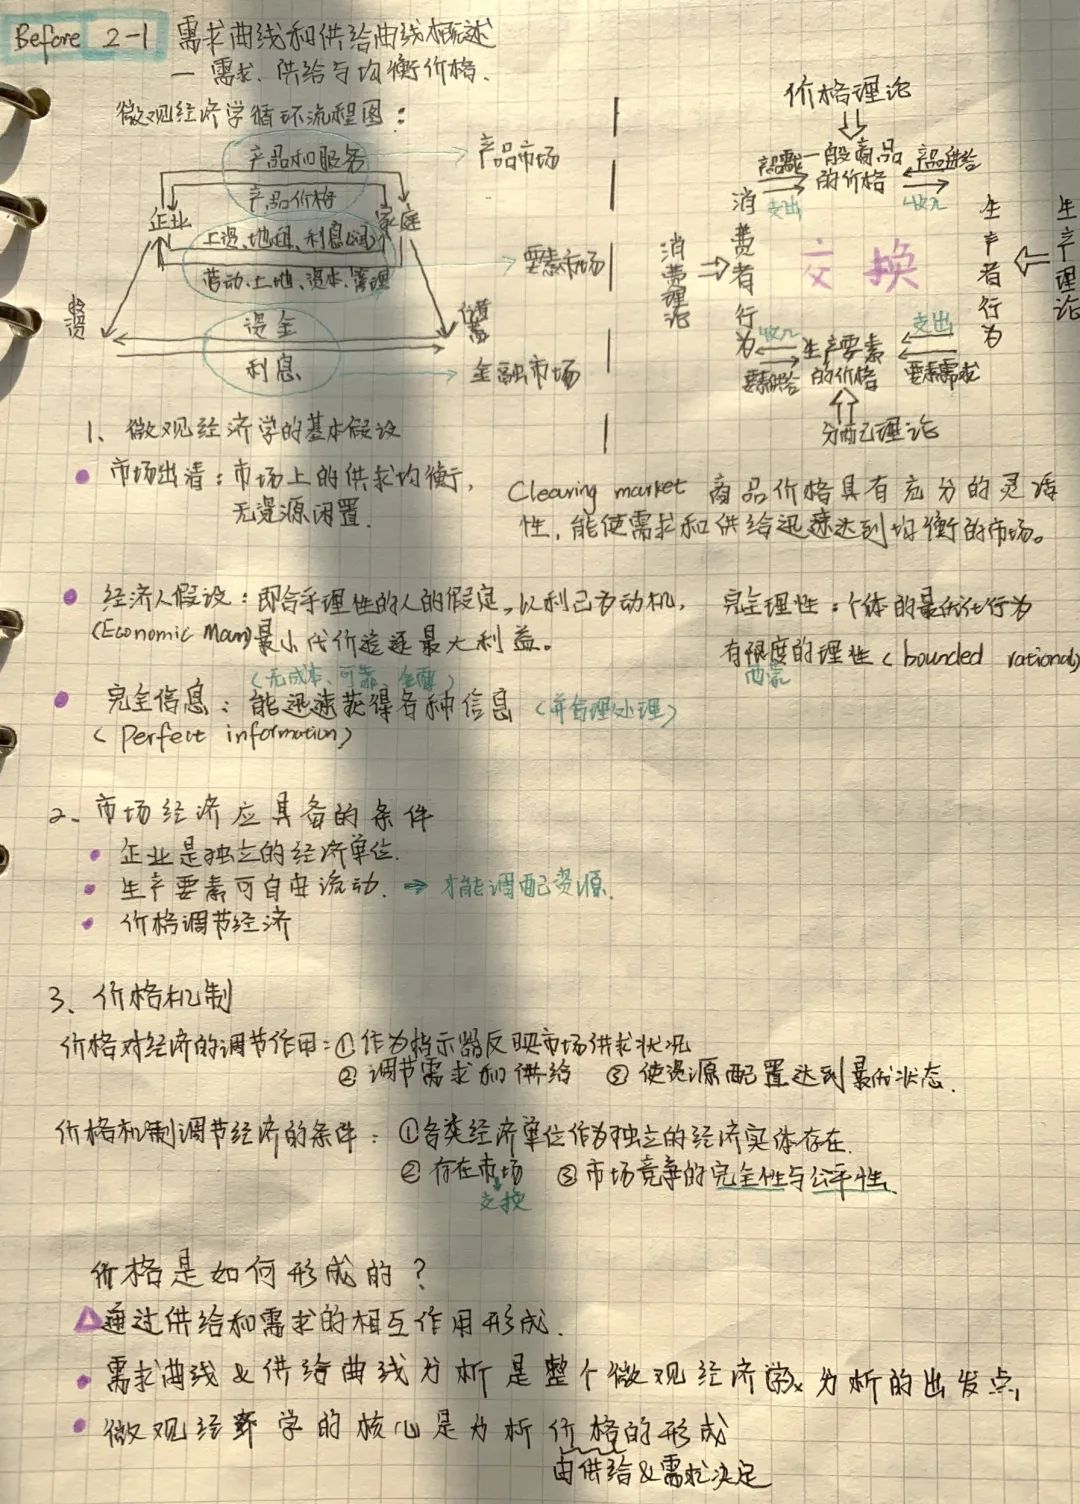 Before 2-1 需求曲线和供给曲线概述
一需求、供给与均衡价格.
微观经济学循环流程图:
产品和服务
产品市场
产品价格
企业
家庭
工资、地租、利息、利润
劳动、土地、资本、管理
要素市场
投资
储蓄
资金
利息
金融市场
价格理论
产品需求
一般商品
的价格
产品供给
支出
收入
消费者行为
消费理论
交换
生产者行为
生产理论
收入
支出
生产要素
的价格
要素供给
要素需求
分配理论
1、微观经济学的基本假设
市场出清:市场上的供求均衡,
无资源闲置.
Clearing market 商品价格具有充分的灵活
性,能使需求和供给迅速达到均衡的市场。
经济人假设:即合乎理性的人的假定,以利己为动机,
(Economic Man)最小代价追逐最大利益。
完全理性:个体的最优化行为
有限度的理性(bounded rational)
西蒙
(无成本、可靠、全面)
完全信息:能迅速获得各种信息(并合理处理)
(Perfect information)
2、市场经济应具备的条件
企业是独立的经济单位.
生产要素可自由流动. ⇒ 才能调配资源.
价格调节经济
3、价格机制
价格对经济的调节作用:①作为指示器反映市场供求状况
②调节需求和供给 ③使资源配置达到最优状态.
价格机制调节经济的条件:①各类经济单位作为独立的经济实体存在.
②存在市场 ③市场竞争的完全性与公平性.
交换
价格是如何形成的?
通过供给和需求的相互作用形成.
需求曲线&供给曲线分析是整个微观经济学分析的出发点,
微观经济学的核心是分析价格的形成
由供给&需求决定